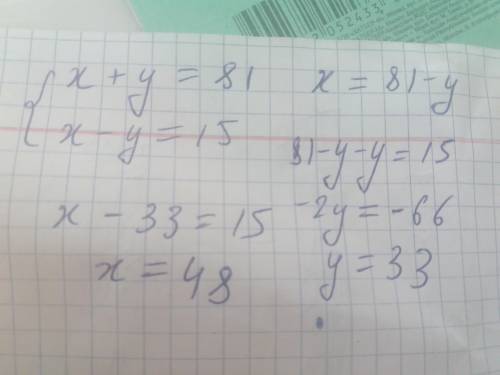 x + y = 81
x - y = 15
x = 81 - y
81 - y - y = 15
-2y = -66
y = 33
x - 33 = 15
x = 48